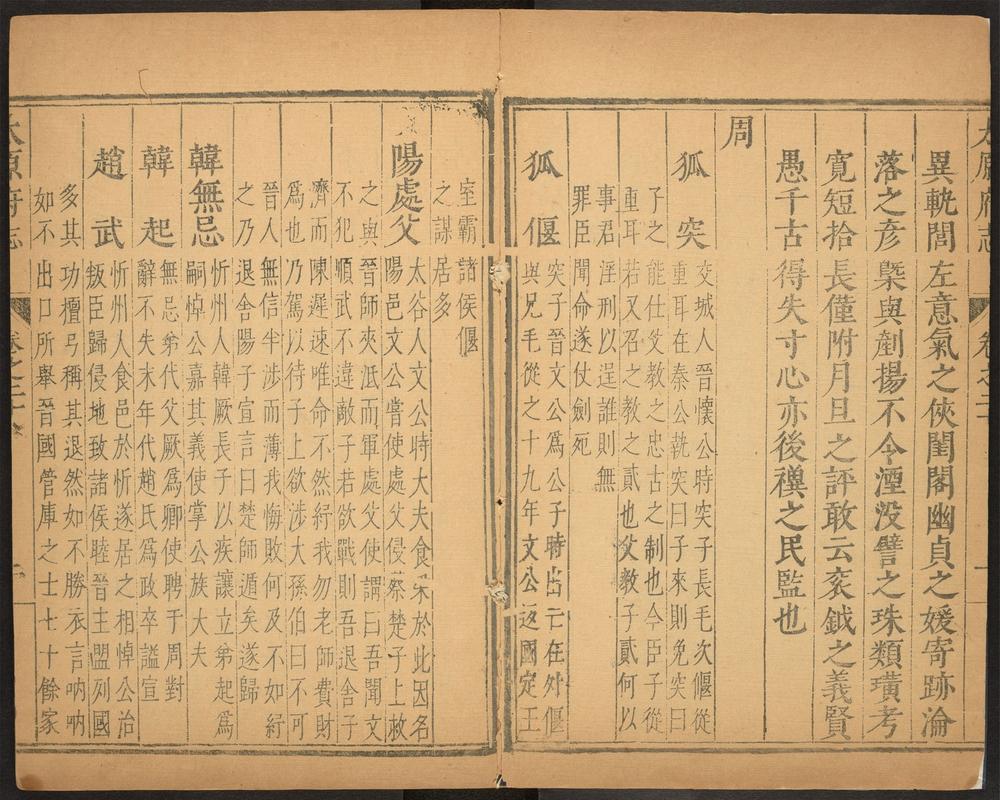 太原府志 卷之二十
異軌閭左意氣之俠閨閣幽貞之媛寄跡淪
落之彥槩與剷揚不令湮没譬之珠類璜考
寬短拾長僅附月旦之評敢云衮鉞之義賢
愚千古得失寸心亦後禩之民監也
周
狐突 交城人晉懷公時突子長毛次偃從
重耳在秦公執突曰子來則免突曰
子之能仕父教之忠古之制也今臣子從
重耳若又召之教之貳也父教子貳何以
事君淫刑以逞誰則無
罪臣聞命遂仗劍死
狐偃 突子晉文公爲公子時出亡在外偃
與兄毛從之十九年文公返國定王
室霸諸侯偃
之謀居多
陽處父 太谷人文公時大夫食采於此因名
陽邑文公嘗使處父侵蔡楚子上救
之與晉師夾泜而軍處父使謂曰吾聞文
不犯順武不違敵子若欲戰則吾退舍子
濟而陳遲速唯命不然紓我勿老師費財
爲也乃駕以待子上欲涉大孫伯曰不可
晉人無信半涉而薄我悔敗何及不如紓
之乃退舍陽子宣言曰楚師遁矣遂歸
韓無忌 忻州人韓厥長子以疾讓立弟起爲
嗣悼公嘉其義使掌公族大夫
韓起 無忌弟代父厥爲卿使聘于周對
辭不失末年代趙氏爲政卒謚宣
趙武 忻州人食邑於忻遂居之相悼公治
叛臣歸侵地致諸侯睦晉主盟列國
多其功檀弓稱其退然如不勝衣言呐呐
如不出口所舉晉國管庫之士七十餘家
太原府志 卷之二十